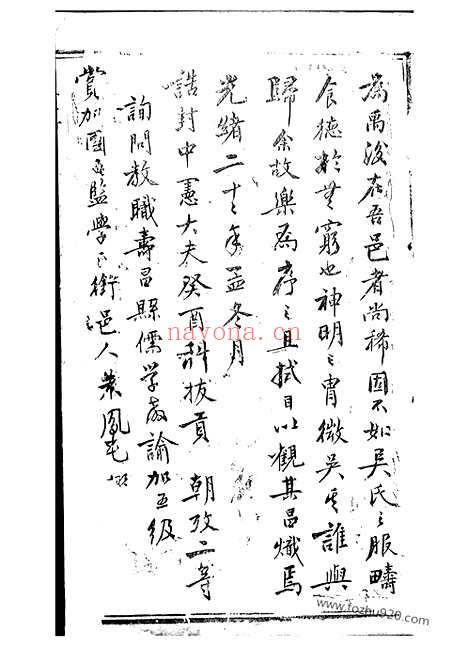 為禹後在吾邑者尚稀固不如吳氏之服疇
食德於無窮也神明之胄微吳其誰與
歸余故樂為序之且拭目以觀其昌熾焉
光緒二十二年孟冬月
誥封中憲大夫癸酉科拔貢 朝考二等
詢問教職壽昌縣儒學教諭加五級
賞加國子監學正銜邑人葉鳳毛
nayona.cn
www.fozhu920.com